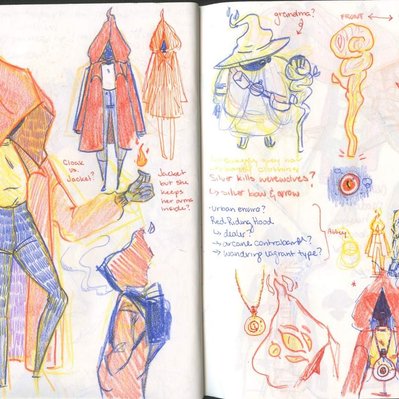 Cloak
vs.
Jacket?
Jacket
but she
keeps
her arms
inside?
grandma?
FRONT
Silver kills werewolves?
↳ silver bow & arrow
urban enviro?
Red Riding Hood
→ dealer?
→ arcane contraband?
→ wandering vagrant type?